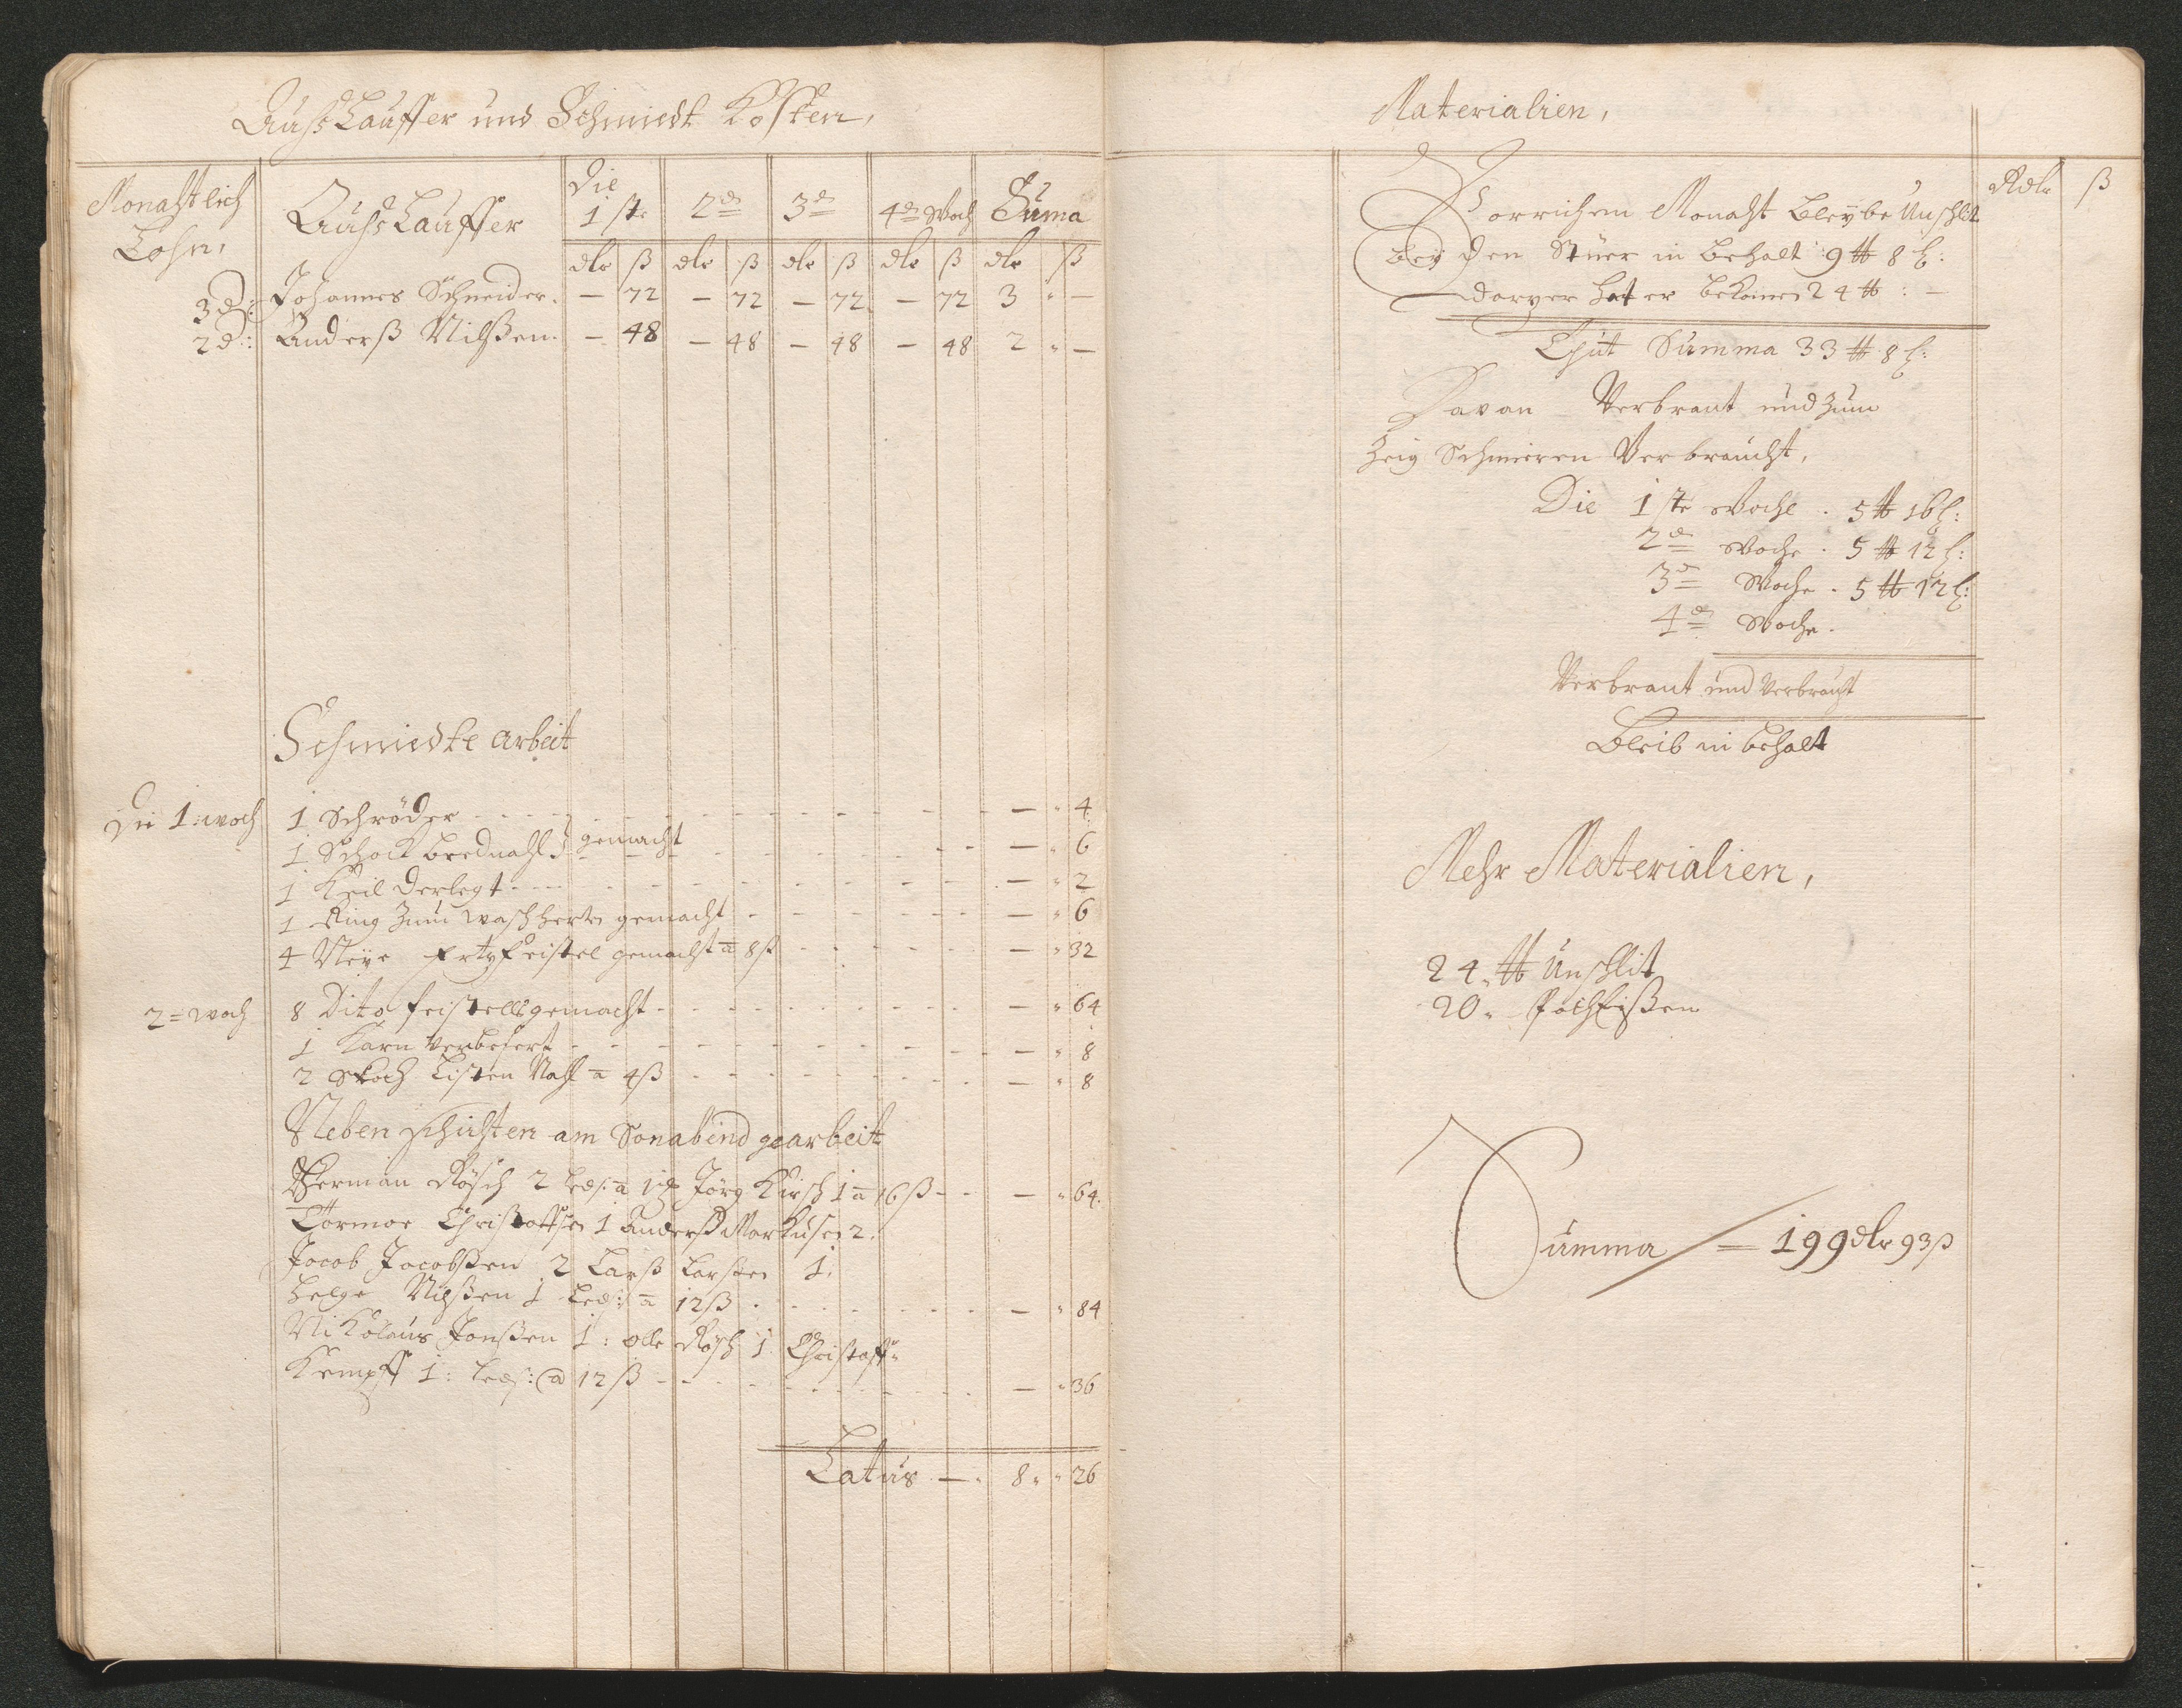 Außlauffer und Schmiedt Kosten,
Monahtlich Lohn,
Außlauffer
Die 1ste 2de 3de 4de Woch Suma
dlr ß dlr ß dlr ß dlr ß dlr ß
3 d: Johannes Schneider. — 72 — 72 — 72 — 72 3 " —
2 d: Anderß Nilßen. — 48 — 48 — 48 — 48 2 " —
Schmiedte arbeit
Die 1: woch 1 Schröder — " 4
1 Schock brednahl } gemacht — " 6
1 Keil Verlegt — " 2
1 Ring zum waschherdt gemacht — " 6
4 Neye Feistel gemacht a 8 ß — " 32
2 = woch 8 Dito feistell gemacht — " 64
1 Karn verbesert — " 8
2 Schock Listen Nahl a 4 ß — " 8
Neben schichten am Sonabend gearbeit
Herman Rösch 2 Jörg Kirsch 1 a 16 ß — " 64.
Tormoe Christoffsen 1 Anderß Markusen 2.
Jacob Jacobßen 2 Larß Larßen 1.
Helge Nilßen 1 a 12 ß — " 84
Nikolaus Jonßen 1: olle Rösch 1 Christoff
Kempff 1: a 12 ß — " 36
Latus — 8 " 26
Materialien,
Rdlr ß
Vorrichem Monaht bleybe Unschlit
bey den Stüer in behalt 9 ℔ 8 l:
darzu hat er bekomen 24 ℔: —
Thut Summa 33 ℔ 8 l:
Davan Verbrant und zum
Zeig Schmieren Verbraucht,
Die 1ste Woche . 5 ℔ 16 l:
2de Woche . 5 ℔ 12 l:
3de Woche . 5 ℔ 12 l:
4de Woche.
Verbrant und Verbraucht
Bleib in behalt
Mehr Materialien,
24 " ℔ Unschlit
20 " Pocheißen
Summa = 199 dlr 93 ß